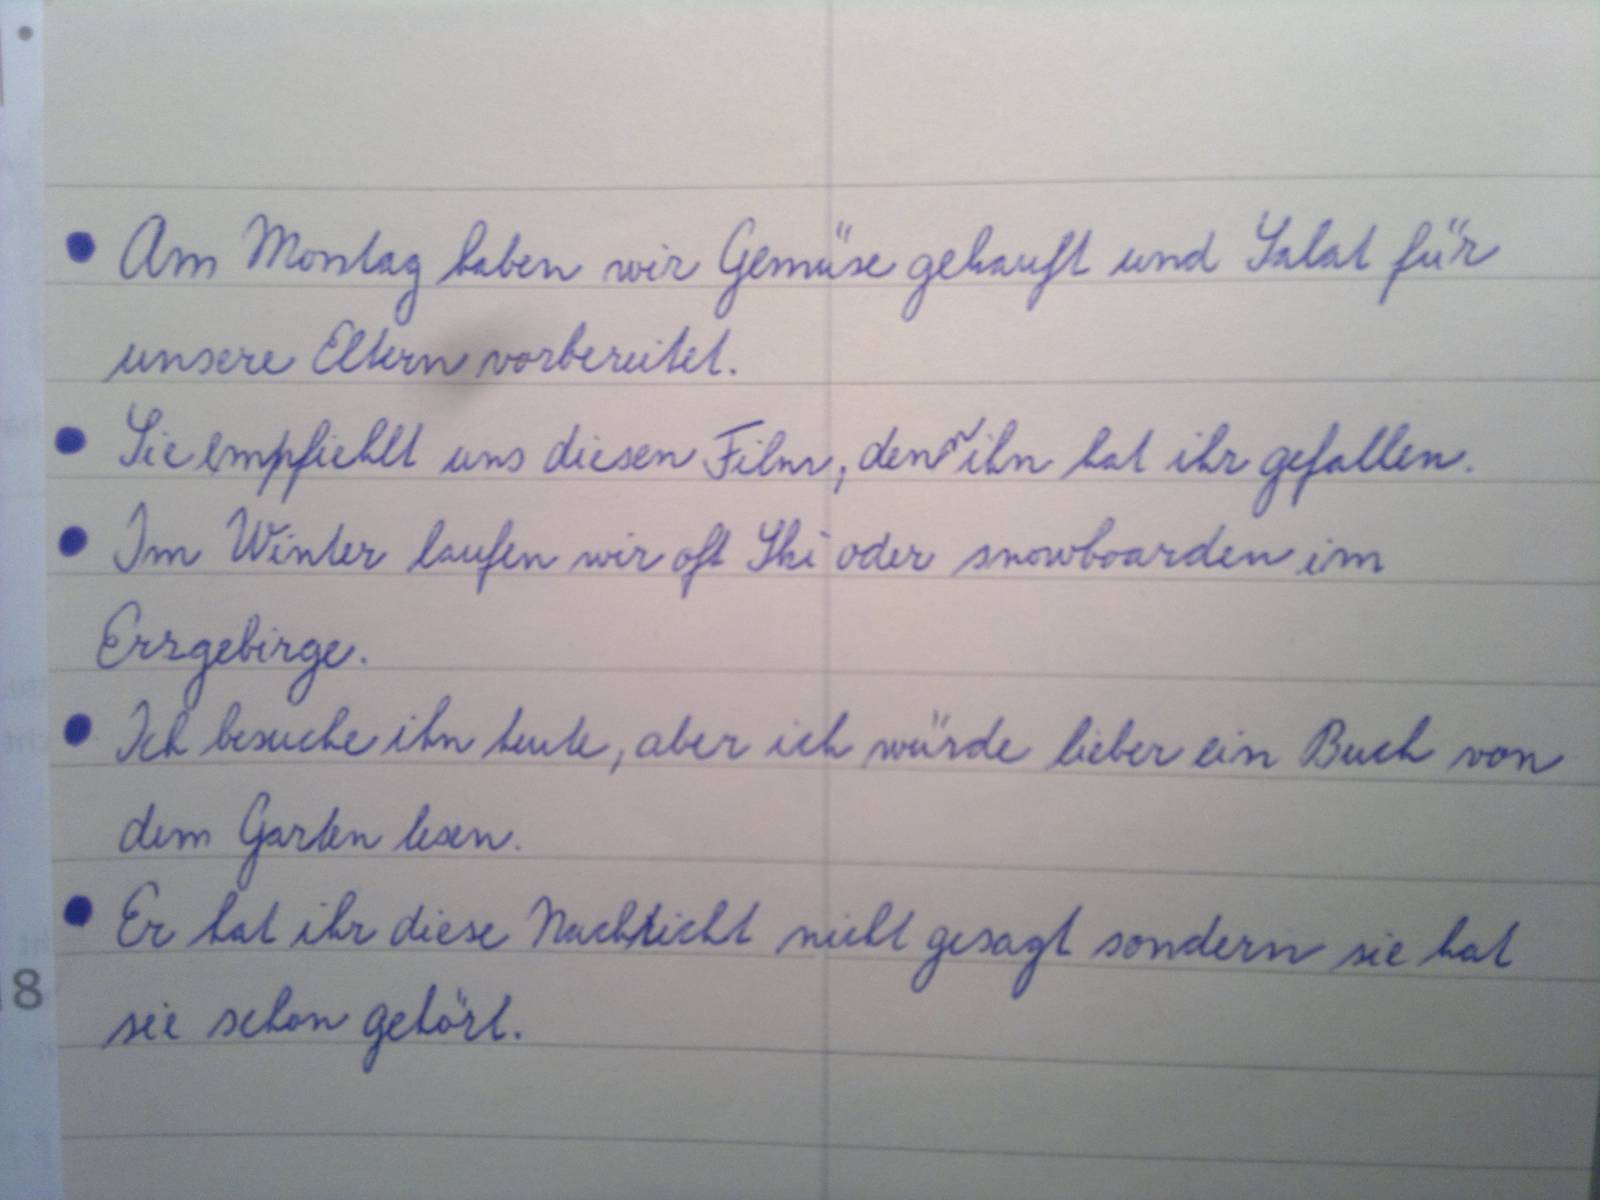 • Am Montag haben wir Gemüse gekauft und Salat für
unsere Eltern vorbereitet.
• Sie empfiehlt uns diesen Film, denn ihn hat ihr gefallen.
• Im Winter laufen wir oft Ski oder snowboarden im
Erzgebirge.
• Ich besuche ihn heute, aber ich würde lieber ein Buch von
dem Garten lesen.
• Er hat ihr diese Nachricht nicht gesagt sondern sie hat
8
sie schon gehört.